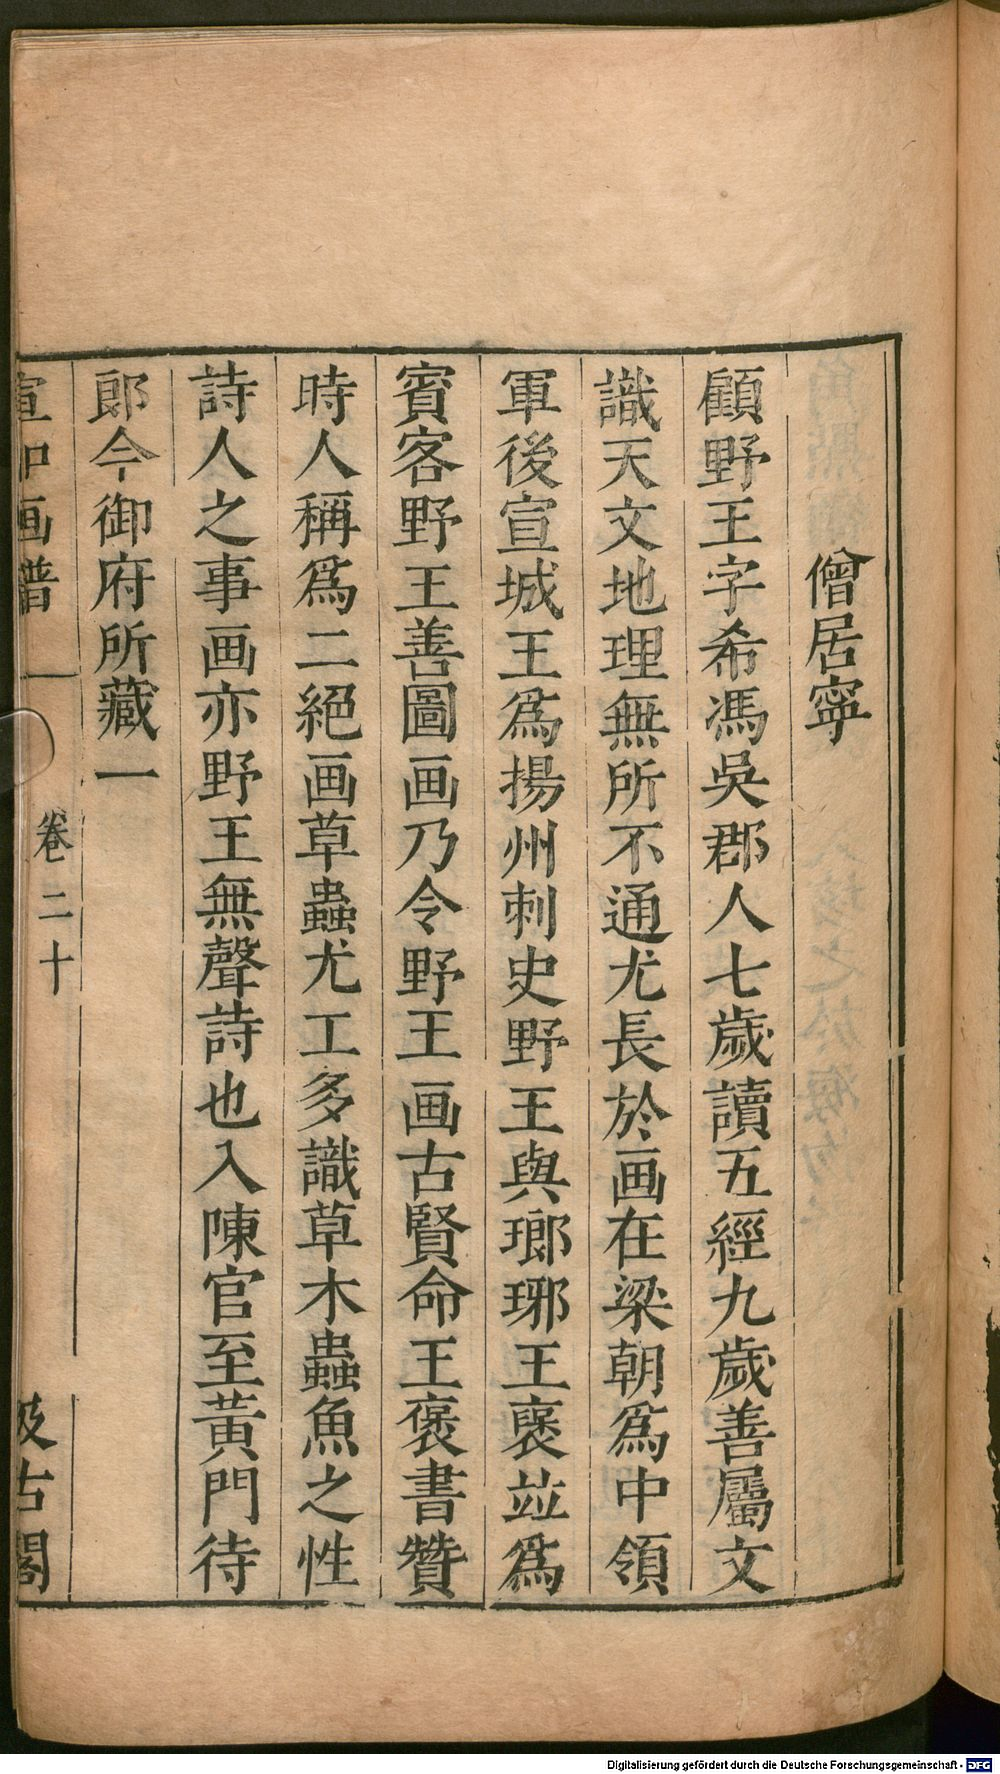 僧居寧
顧野王字希馮吳郡人七歲讀五經九歲善屬文
識天文地理無所不通尤長於画在梁朝爲中領
軍後宣城王爲揚州刺史野王與瑯琊王褒並爲
賓客野王善圖画乃令野王画古賢命王褒書贊
時人稱爲二絕画草蟲尤工多識草木蟲魚之性
詩人之事画亦野王無聲詩也入陳官至黃門待
郞今御府所藏一
宣和画譜
卷二十
汲古閣
Digitalisierung gefördert durch die Deutsche Forschungsgemeinschaft - DFG